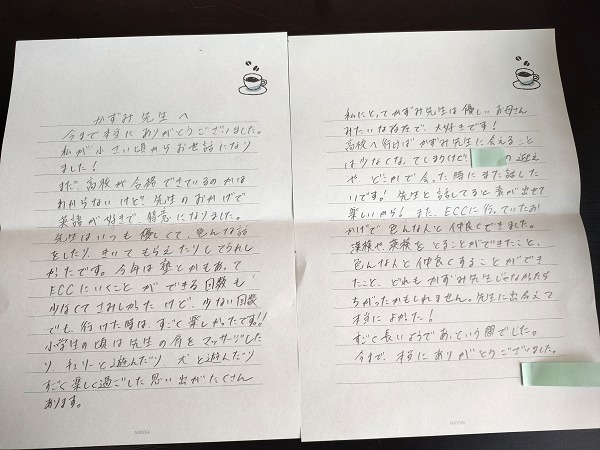 かずみ先生へ
今まで本当にありがとうございました。
私が小さい頃からお世話になり
ました！
まだ高校が合格できているのかは
わからないけど先生のおかげで
英語が好きで、得意になりました。
先生はいつも優しくて、色んな話
をしたり、きいてもらえたりしてうれし
かったです。今年は塾とかもあって
ECCにいくことができる回数も
少なくてさみしかったけど、少ない回数
でも、行けた時は、すごく楽しかったです!!
小学生の頃は先生の肩をマッサージした
り チェリーと遊んだり 犬と遊んだり
すごく楽しく過ごした思い出がたくさん
あります。
MIDORI
私にとってかずみ先生は優しいお母さん
みたいな存在で、大好きです！
高校へ行けばかずみ先生に会えること
は少なくなってしまうけど の迎え
や、どこかで会った時にまた話した
いです！先生と話してると素が出せて
楽しいから！また、ECCに行っていたお
かげで色んな人と仲良くできました。
漢検や英検をとることができたこと、
色んな人と仲良くすることができ
たこと、どれもかずみ先生じゃなかったら
ちがったかもしれません。先生に出会えて
本当によかった！
すごく長いようであっという間でした。
今まで、本当にありがとうございました。
MIDORI